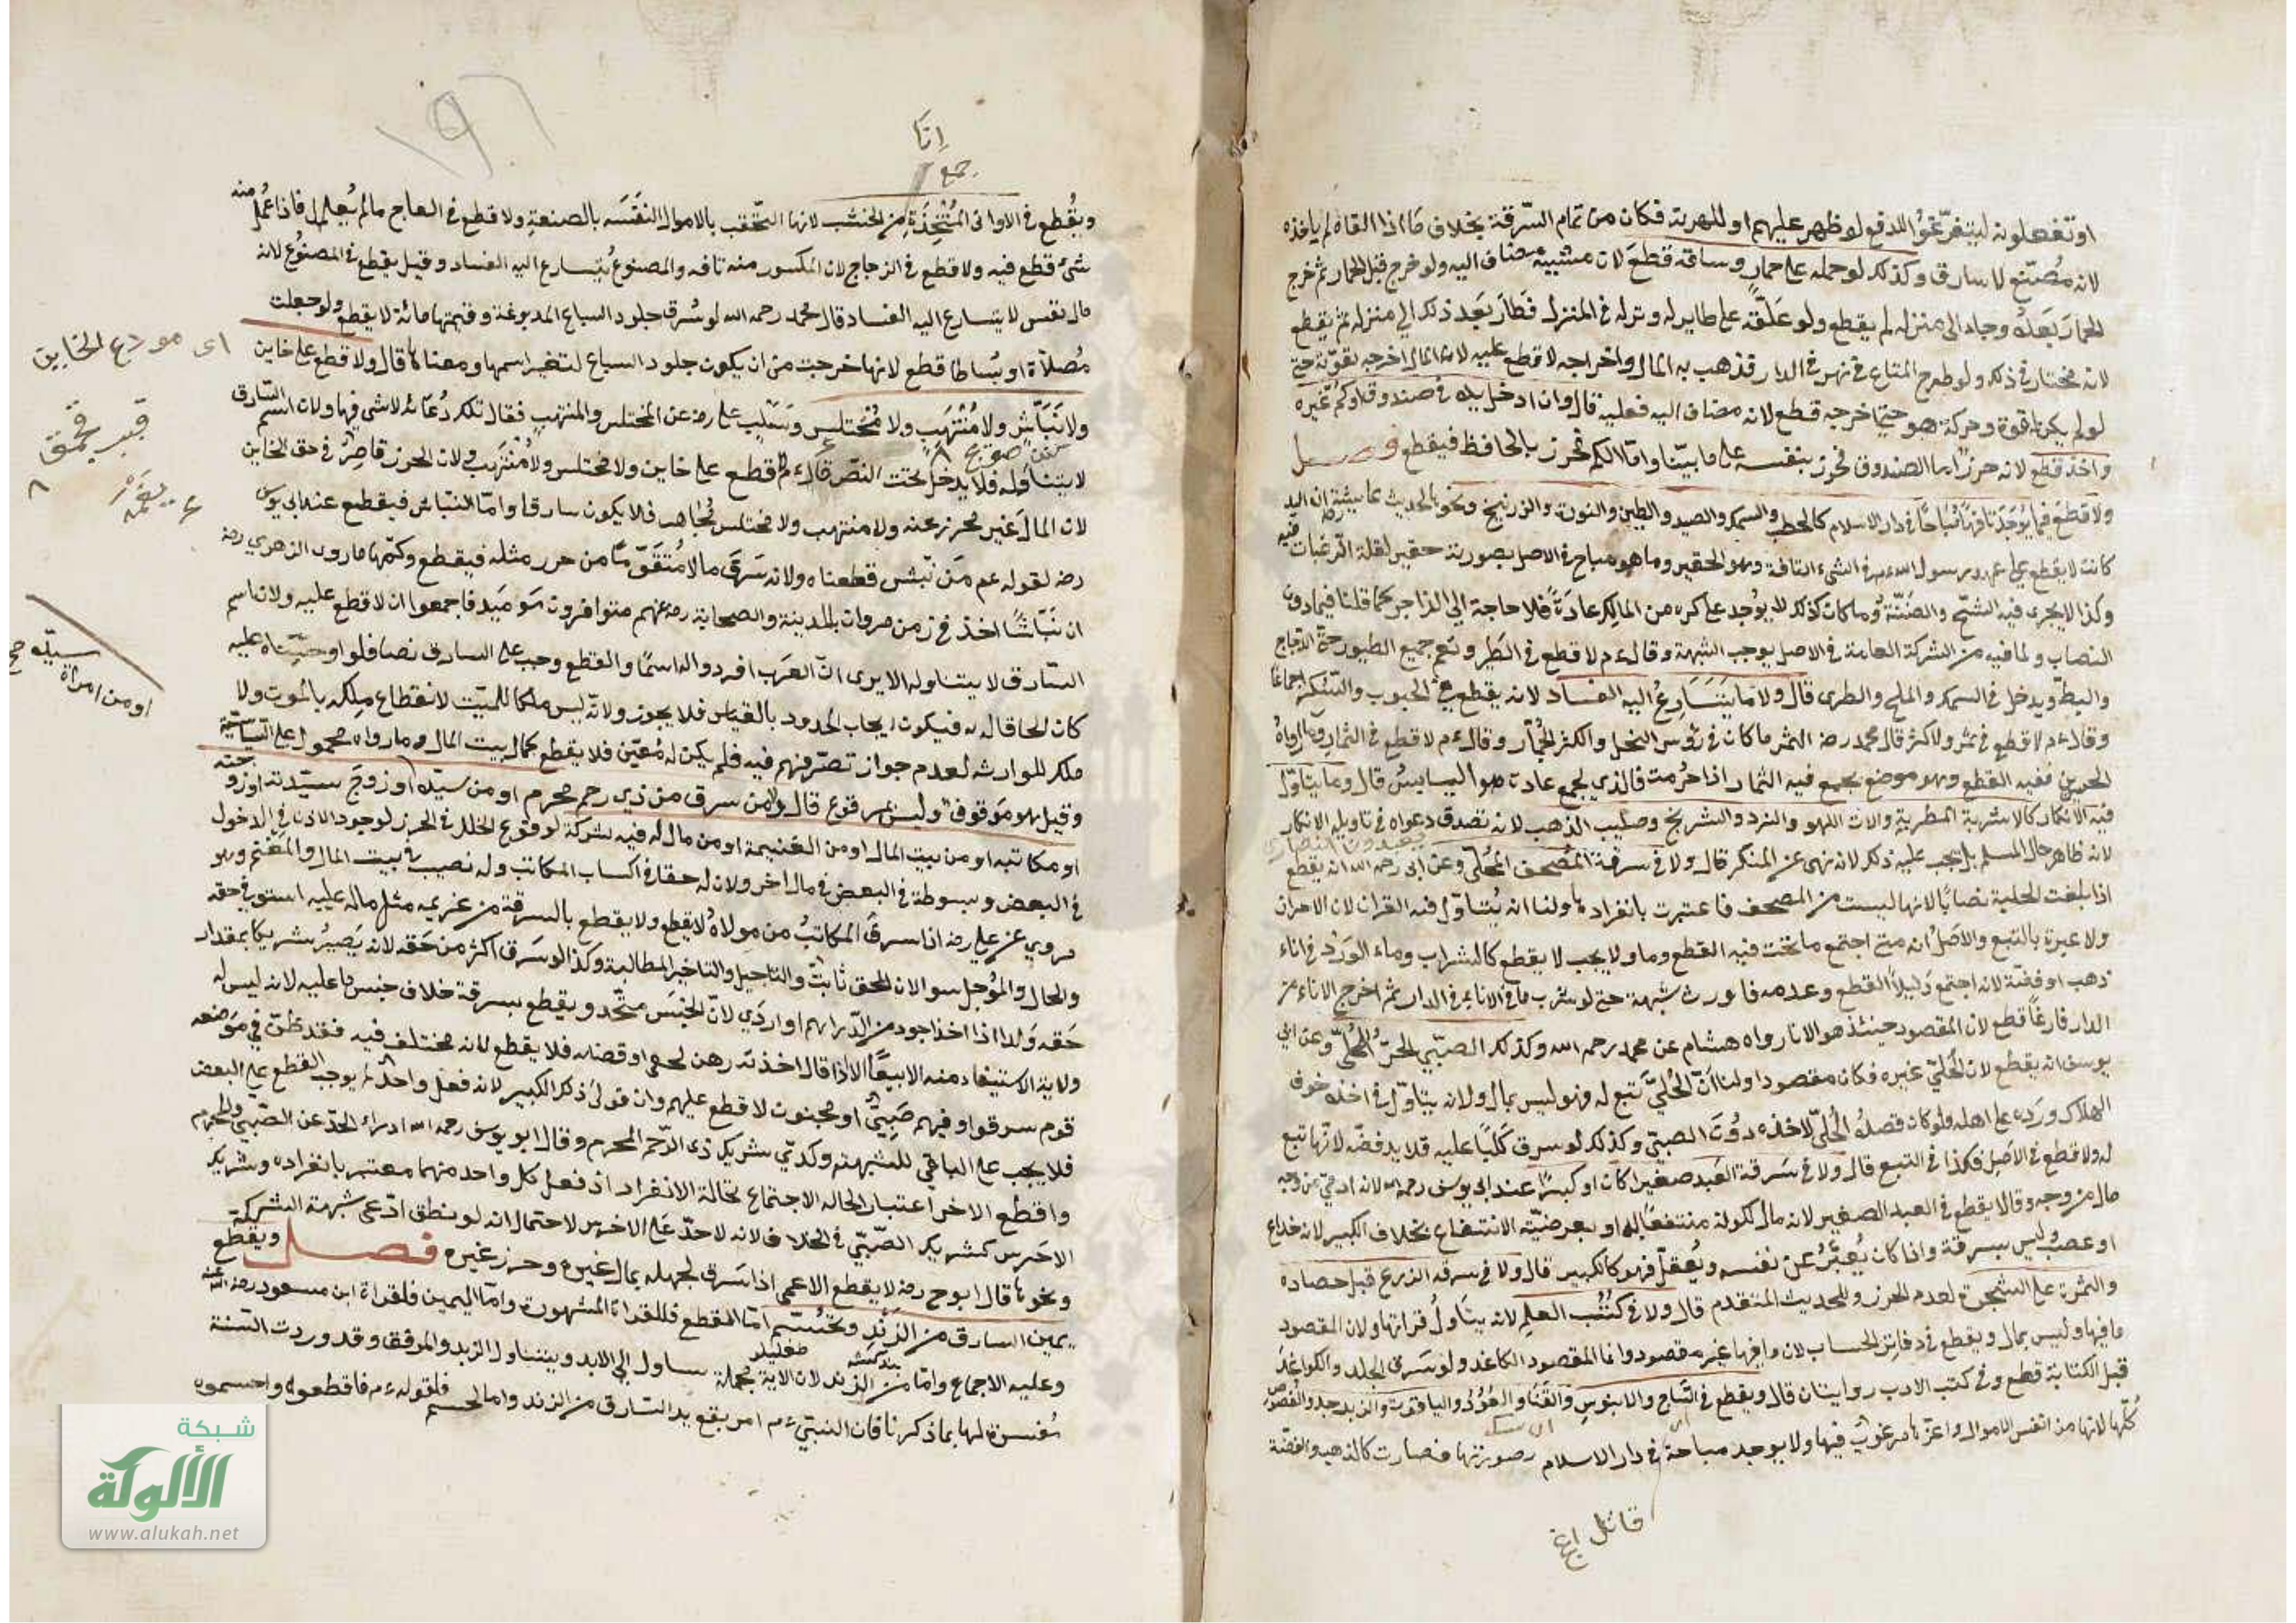 او تفعلونه ليتفرغوا للدفع لو ظهر عليهم او للهرب فكان من تمام السرقة بخلاف ما اذا القاه لم ياخذه
لانه مضيع لا سارق وكذلك لو حمله على حمار وساقه قطع لان مشيه مضاف اليه ولو خرج قبل الحمار ثم خرج
الحمار بعده وجاء الى منزله لم يقطع ولو علقه على طاير له وتركه في المنزل فطار بعد ذلك الى منزله لم يقطع
لانه مختار في ذلك ولو طرح المتاع في نهر في الدار فذهب به الماء واخراجه لا قطع عليه لان الماء اخرجه بقوته حتى
لو لم يكن له قوة وحركه هو حتى اخرجه قطع لانه مضاف اليه فعليه قال وان ادخل يده في صندوق او كم غيره
واخذ قطع لانه حرز اما الصندوق فحرز بنفسه على ما بينا واما الكم فحرز بالحافظ فيقطع فصل
ولا قطع فيما يوجد تافها مباحا في دار الاسلام كالحطب والسمك والصيد والطين والنورة والزرنيخ ونحوها لحديث عايشة رضه ان اليد
كانت لا يقطع على عهد رسول الله عم في الشيء التافه وهو الحقير وما هو مباح في الاصل بصورته حقير لقلة الرغبات فيه
وكذا لا يجرى فيه الشح والضنة وما كان كذلك لا يوجد على كره من المالك عادة فلا حاجة الى الزاجر كما قلنا فيما دون
النصاب ولما فيه من الشركة العامة في الاصل يوجب الشبهة وقال عم لا قطع في الطير ونعم جميع الطيور حتى الدجاج
والبط ويدخل في السمك والملح والطرى قال ولا ما يتسارع اليه الفساد لانه يقطع في الحبوب والسكر اجماعا
وقال عم لا قطع في ثمر ولا كثر قال محمد رضه الثمر ما كان في رؤس النخل والكثر الجمار وقال عم لا قطع في الثمار وما اواه
الجرين ففيه القطع وهو موضع يجمع فيه الثمار اذا حرمت فالذي يجمع عادة هو اليابس قال وما يتاول
فيه الانكار كالاشربة المطربة والات اللهو والنرد والشطرنج وصليب الذهب لانه تصدق دعواه في تاويله الانكار
لانه ظاهر حال المسلم بل يجب عليه ذلك لانه نهى عن المنكر قال ولا في سرقة المصحف المحلى وعن ابى رحمه الله انه يقطع
اذا بلغت الحلية نصابا لانها ليست من المصحف فاعتبرت بانفرادها ولنا انه يتاول فيه القران لان الاحراز
ولا عبرة بالتبع والاصل انه متى اجتمع ما تحت فيه القطع وما ولا يجب لا يقطع كالشراب وماء الورد في اناء
ذهب او فضة لانه اجتمع دليلا القطع وعدمه فاورث شبهة حتى لو شرب ما في الاناء في الدار ثم اخرج الاناء من
الدار فارغا قطع لان المقصود حينئذ هو الاناء رواه هشام عن محمد رحمه الله وكذلك الصبي الحر المحلى وعن ابي
يوسف انه يقطع لان الحلي غيره فكان مقصودا ولنا ان الحلي تبع له وهو ليس بمال ولانه يتاول في اخذه خوف
الهلاك ورده على اهله ولو كان قصده الحلي لاخذه دون الصبي وكذلك لو سرق كلبا عليه قلايد فضه لانها تبع
له ولا قطع في الاصل فكذا في التبع قال ولا في سرقة العبد صغيرا كان او كبيرا عند ابى يوسف رحمه الله لانه ادمي من وجه
مال من وجه وقالا يقطع في العبد الصغير لانه مال لكونه منتفعا به او بعرضية الانتفاع بخلاف الكبير لانه خداع
او غصب وليس بسرقة واذا كان يعبر عن نفسه ويعقل فهو كالكبير قال ولا في سرقه الزرع قبل حصاده
والثمرة على الشجرة لعدم الحرز وللحديث المتقدم قال ولا في كتب العلم لانه يتاول قراتها ولان المقصود
ما فيها وليس بمال ويقطع في دفاتر الحساب لان ما فيها غير مقصود وانما المقصود الكاغد ولو سرق الجلد والكواغد
قبل الكتابة قطع وفي كتب الادب روايتان قال ويقطع في الساج والابنوس والقنا والعود والياقوت والزبرجد والفصوص
كلها لانها من انفس الاموال واعزها مرغوب فيها ولا يوجد مباحة في دار الاسلام بصورتها فصارت كالذهب والفضة
١٩٦
انا
جمع
ويقطع في الاوانى المتخذة من الخشب لانها التحقت بالاموال النفسه بالصنعة ولا قطع في العاج ما لم يعمل فاذا عمل منه
شئ قطع فيه ولا قطع في الزجاج لان المكسور منه تافه والمصنوع يتسارع اليه الفساد وقيل يقطع في المصنوع لانه
مال نفيس لا يتسارع اليه الفساد قال محمد رحمه الله لو سرق جلود السباع المدبوغة وقيمتها مائة لا يقطع ولو جعلت
مصلاة او بساطا قطع لانها خرجت من ان يكون جلود السباع لتغير اسمها ومعناها قال ولا قطع على خاين
ولا نباش ولا منتهب ولا مختلس وسئل على رضه عن المختلس والمنتهب فقال تلك دعابة لا شى فيها ولان اسم السارق
لا يتناوله فلا يدخل تحت النص قال عم لا قطع على خاين ولا مختلس ولا منتهب ولان الحرز قاصر في حق الخاين
لان المال غير محرز عنه ولا منتهب ولا مختلس مجاهر فلا يكون سارقا واما النباش فيقطع عند ابى يوسف
رضه لقوله عم من نبش قطعناه ولانه سرق مالا متقوما من حرز مثله فيقطع وكمها ما روى الزهري رضه
ان نباشا اخذ في زمن مروان بالمدينة والصحابة رضه عنهم متوافرون يوميذ فاجمعوا ان لا قطع عليه ولان اسم
السارق لا يتناوله الا يرى ان العرب افردوا له اسما والقطع وجب على السارق نصا فلو اوجبناه عليه
كان الحاقا له به فيكون ايجاب الحدود بالقياس فلا يجوز ولانه ليس ملكا للميت لانقطاع ملكه بالموت ولا
ملك للوارث لعدم جواز تصرفهم فيه فلم يكن له معين فلا يقطع كمال بيت المال وما رواه محمول على السياسة
وقيل هو موقوف وليس بمرفوع قال ولا من سرق من ذي رحم محرم او من سيده او زوج سيدته او زوجته
او مكاتبه او من بيت المال او من الغنيمة او من مال له فيه شركة لوقوع الخلل في الحرز لوجود الاذن في الدخول
في البعض وبسوطة في البعض في مال اخر ولان له حقا في اكساب المكاتب وله نصيب في بيت المال والمغنم وهو
مروي عن علي رضه اذا سرق المكاتب من مولاه لا يقطع ولا يقطع بالسرقة من غريمه مثل ماله عليه استوى في حقه
والحال والمؤجل سوا لان الحق ثابت والتاجيل والتاخير المطالبة وكذا لو سرق اكثر من حقه لانه يصير شريكا بمقدار
حقه ولذا اذا اخذ اجود من الدراهم او اردي لان الجنس متحد ويقطع بسرقة خلاف جنس ما عليه لانه ليس له
ولاية الاستيفاء منه الا بيعا الا اذا قال اخذته رهن لحقى او قضاء فلا يقطع لانه مختلف فيه فقد ظن في موضعه
قوم سرقوا وفيهم صبي او مجنون لا قطع عليهم وان تولى ذلك الكبير لانه فعل واحد لم يوجب القطع على البعض
فلا يجب على الباقي للشبهة وكذي شريك ذى الرحم المحرم وقال ابو يوسف رحمه الله ادراء الحد عن الصبي والمحرم
واقطع الاخر اعتبار الحاله الاجتماع بحالة الانفراد اذ فعل كل واحد منهما معتبر بانفراده وشريك
الاخرس كشريك الصبي في الخلاف لانه لا حد على الاخرس لاحتمال انه لو نطق ادعى شبهة الشركة
ونحوها قال ابو ح رضه لا يقطع الاعمى اذا سرق لجهله بمال غيره وحرز غيره فصل ويقطع
يمين السارق من الزند وتحسم اما القطع فللقراة المشهورة واما اليمين فلقراة ابن مسعود رضه الله عنه
وعليه الاجماع واما من الزند لان الاية مجملة يتناول الى الابد ويتناول الزند والمرفق وقد وردت السنة
مفسرة لها بما ذكرنا فان النبي عم امر بقطع يد السارق من الزند واما الحسم فلقوله عم فاقطعوه واحسموه
اى مودع الخاين
او من امراة سيده صح
شبكة
الألوكة
www.alukah.net